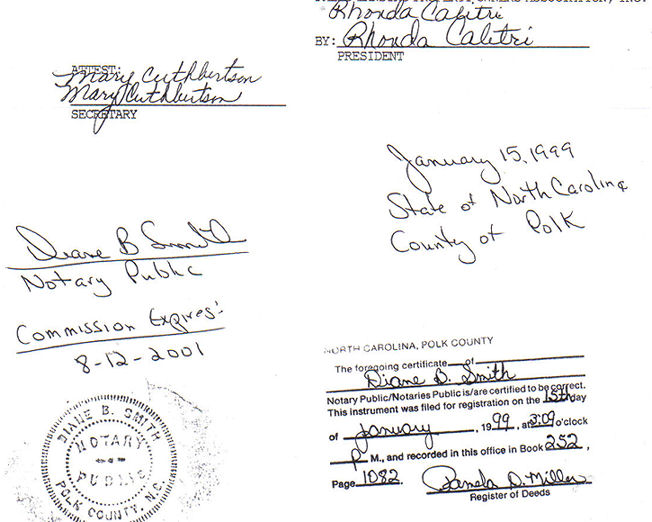 OWNERS ASSOCIATION, INC.
Rhonda Calitri
BY: Rhonda Calitri
PRESIDENT
ATTEST:
Mary Cuthbertson
Mary Cuthbertson
SECRETARY
January 15, 1999
State of North Carolina
County of Polk
Diane B Smith
Notary Public
Commission Expires:
8-12-2001
DIANE B. SMITH
NOTARY
PUBLIC
POLK COUNTY, N.C.
NORTH CAROLINA, POLK COUNTY
The foregoing certificate of
Diane B. Smith
Notary Public/Notaries Public is/are certified to be correct.
This instrument was filed for registration on the 15th day
of January, 1999, at 3:09 o'clock
P M., and recorded in this office in Book 252,
Page 1082. Pamela D. Miller
Register of Deeds